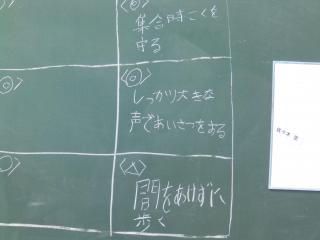 集合時こくを
守る
しっかり大きな
声であいさつをする
間をあけずに
歩く